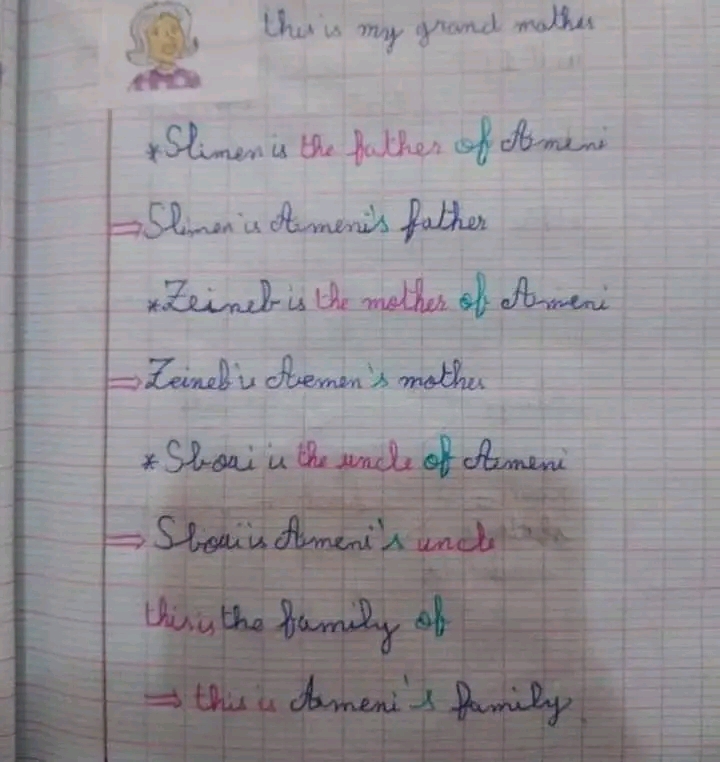 this is my grand mother
*Slimen is the father of Ameni
⇒ Slimen is Ameni's father
*Zeineb is the mother of Ameni
⇒ Zeineb is Aemen's mother
* Sboui is the uncle of Ameni
⇒ Sboui is Ameni's uncle
this is the family of
⇒ this is Ameni's family